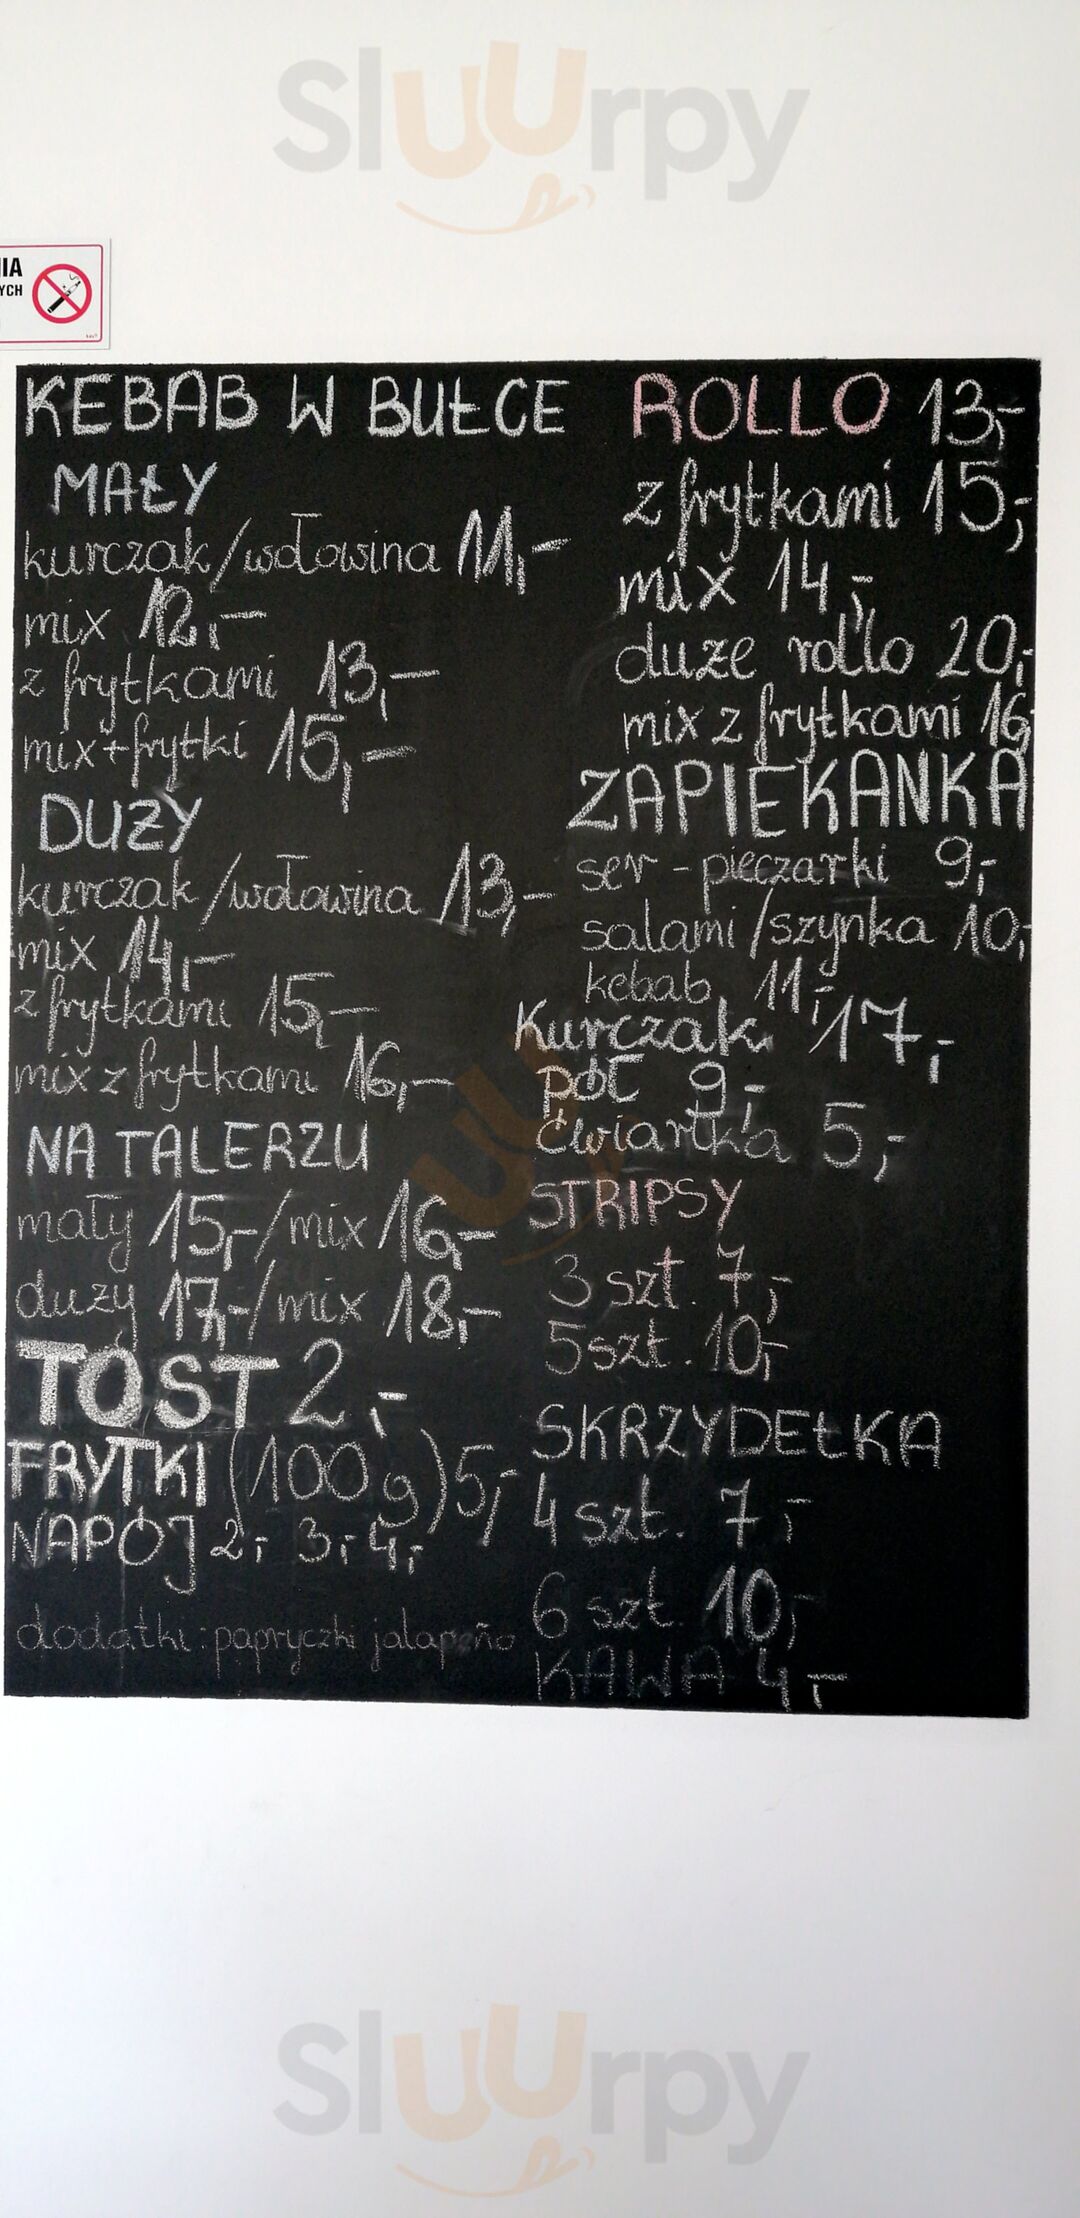 Sluurpy
IA
YCH
KEBAB W BUŁCE
MAŁY
kurczak/wołowina 11,-
mix 12,-
z frytkami 13,-
mix+frytki 15,-
DUŻY
kurczak/wołowina 13,-
mix 14,-
z frytkami 15,-
mix z frytkami 16,-
NA TALERZU
mały 15,-/mix 16,-
duży 17,-/mix 18,-
TOST 2,-
FRYTKI (100g) 5,-
NAPÓJ 2,- 3,- 4,-
dodatki: papryczki jalapeño
ROLLO 13,-
z frytkami 15,-
mix 14,-
duże rollo 20,-
mix z frytkami 16,
ZAPIEKANKA
ser - pieczarki 9,-
salami/szynka 10,-
kebab 11,-
Kurczak 17,-
pół 9,-
ćwiartka 5,-
STRIPSY
3 szt. 7,-
5 szt. 10,-
SKRZYDEŁKA
4 szt. 7,-
6 szt. 10,-
KAWA 4,-
Sluurpy